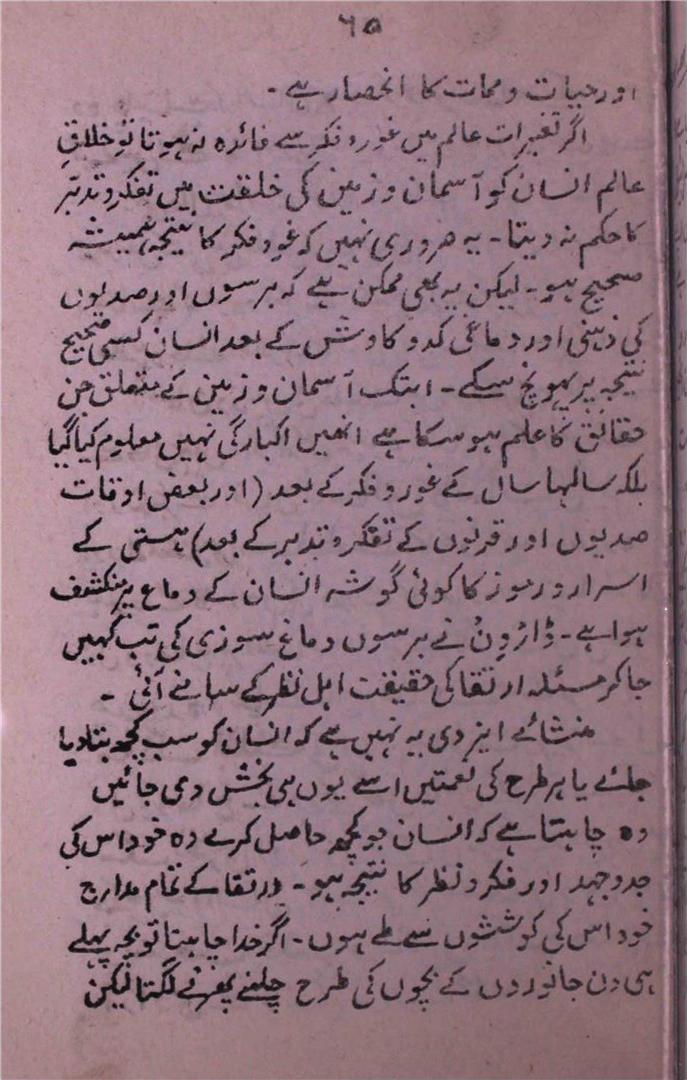 ۶۵
اور حیات و ممات کا انحصار ہے۔
اگر تغیرات عالم میں غور و فکر سے فائدہ نہ ہوتا تو خلاقِ
عالم انسان کو آسمان و زمین کی خلقت میں تفکر و تدبر
کا حکم نہ دیتا۔ یہ ضروری نہیں کہ غور و فکر کا نتیجہ ہمیشہ
صحیح ہو۔ لیکن یہ بھی ممکن ہے کہ برسوں اور صدیوں
کی ذہنی اور دماغی کدو کاوش کے بعد انسان کسی صحیح
نتیجہ پر پہونچ سکے۔ ابتک آسمان و زمین کے متعلق جن
حقائق کا علم ہو سکا ہے انھیں اکبارگی نہیں معلوم کیا گیا
بلکہ سالہا سال کے غور و فکر کے بعد (اور بعض اوقات
صدیوں اور قرنوں کے تفکر و تدبر کے بعد) ہستی کے
اسرار و رموز کا کوئی گوشہ انسان کے دماغ پر منکشف
ہوا ہے۔ ڈارون نے برسوں دماغ سوزی کی تب کہیں
جا کر مسئلہ ارتقا کی حقیقت اہل نظر کے سامنے آئی۔
منشائے ایزدی یہ نہیں ہے کہ انسان کو سب کچھ بتا دیا
جائے یا ہر طرح کی نعمتیں اسے یوں ہی بخش دی جائیں
وہ چاہتا ہے کہ انسان جو کچھ حاصل کرے وہ خود اس کی
جدوجہد اور فکر و نظر کا نتیجہ ہو۔ ارتقا کے تمام مدارج
خود اس کی کوششوں سے طے ہوں۔ اگر خدا چاہتا تو بچہ پہلے
ہی دن جانوروں کے بچوں کی طرح چلنے پھرنے لگتا لیکن